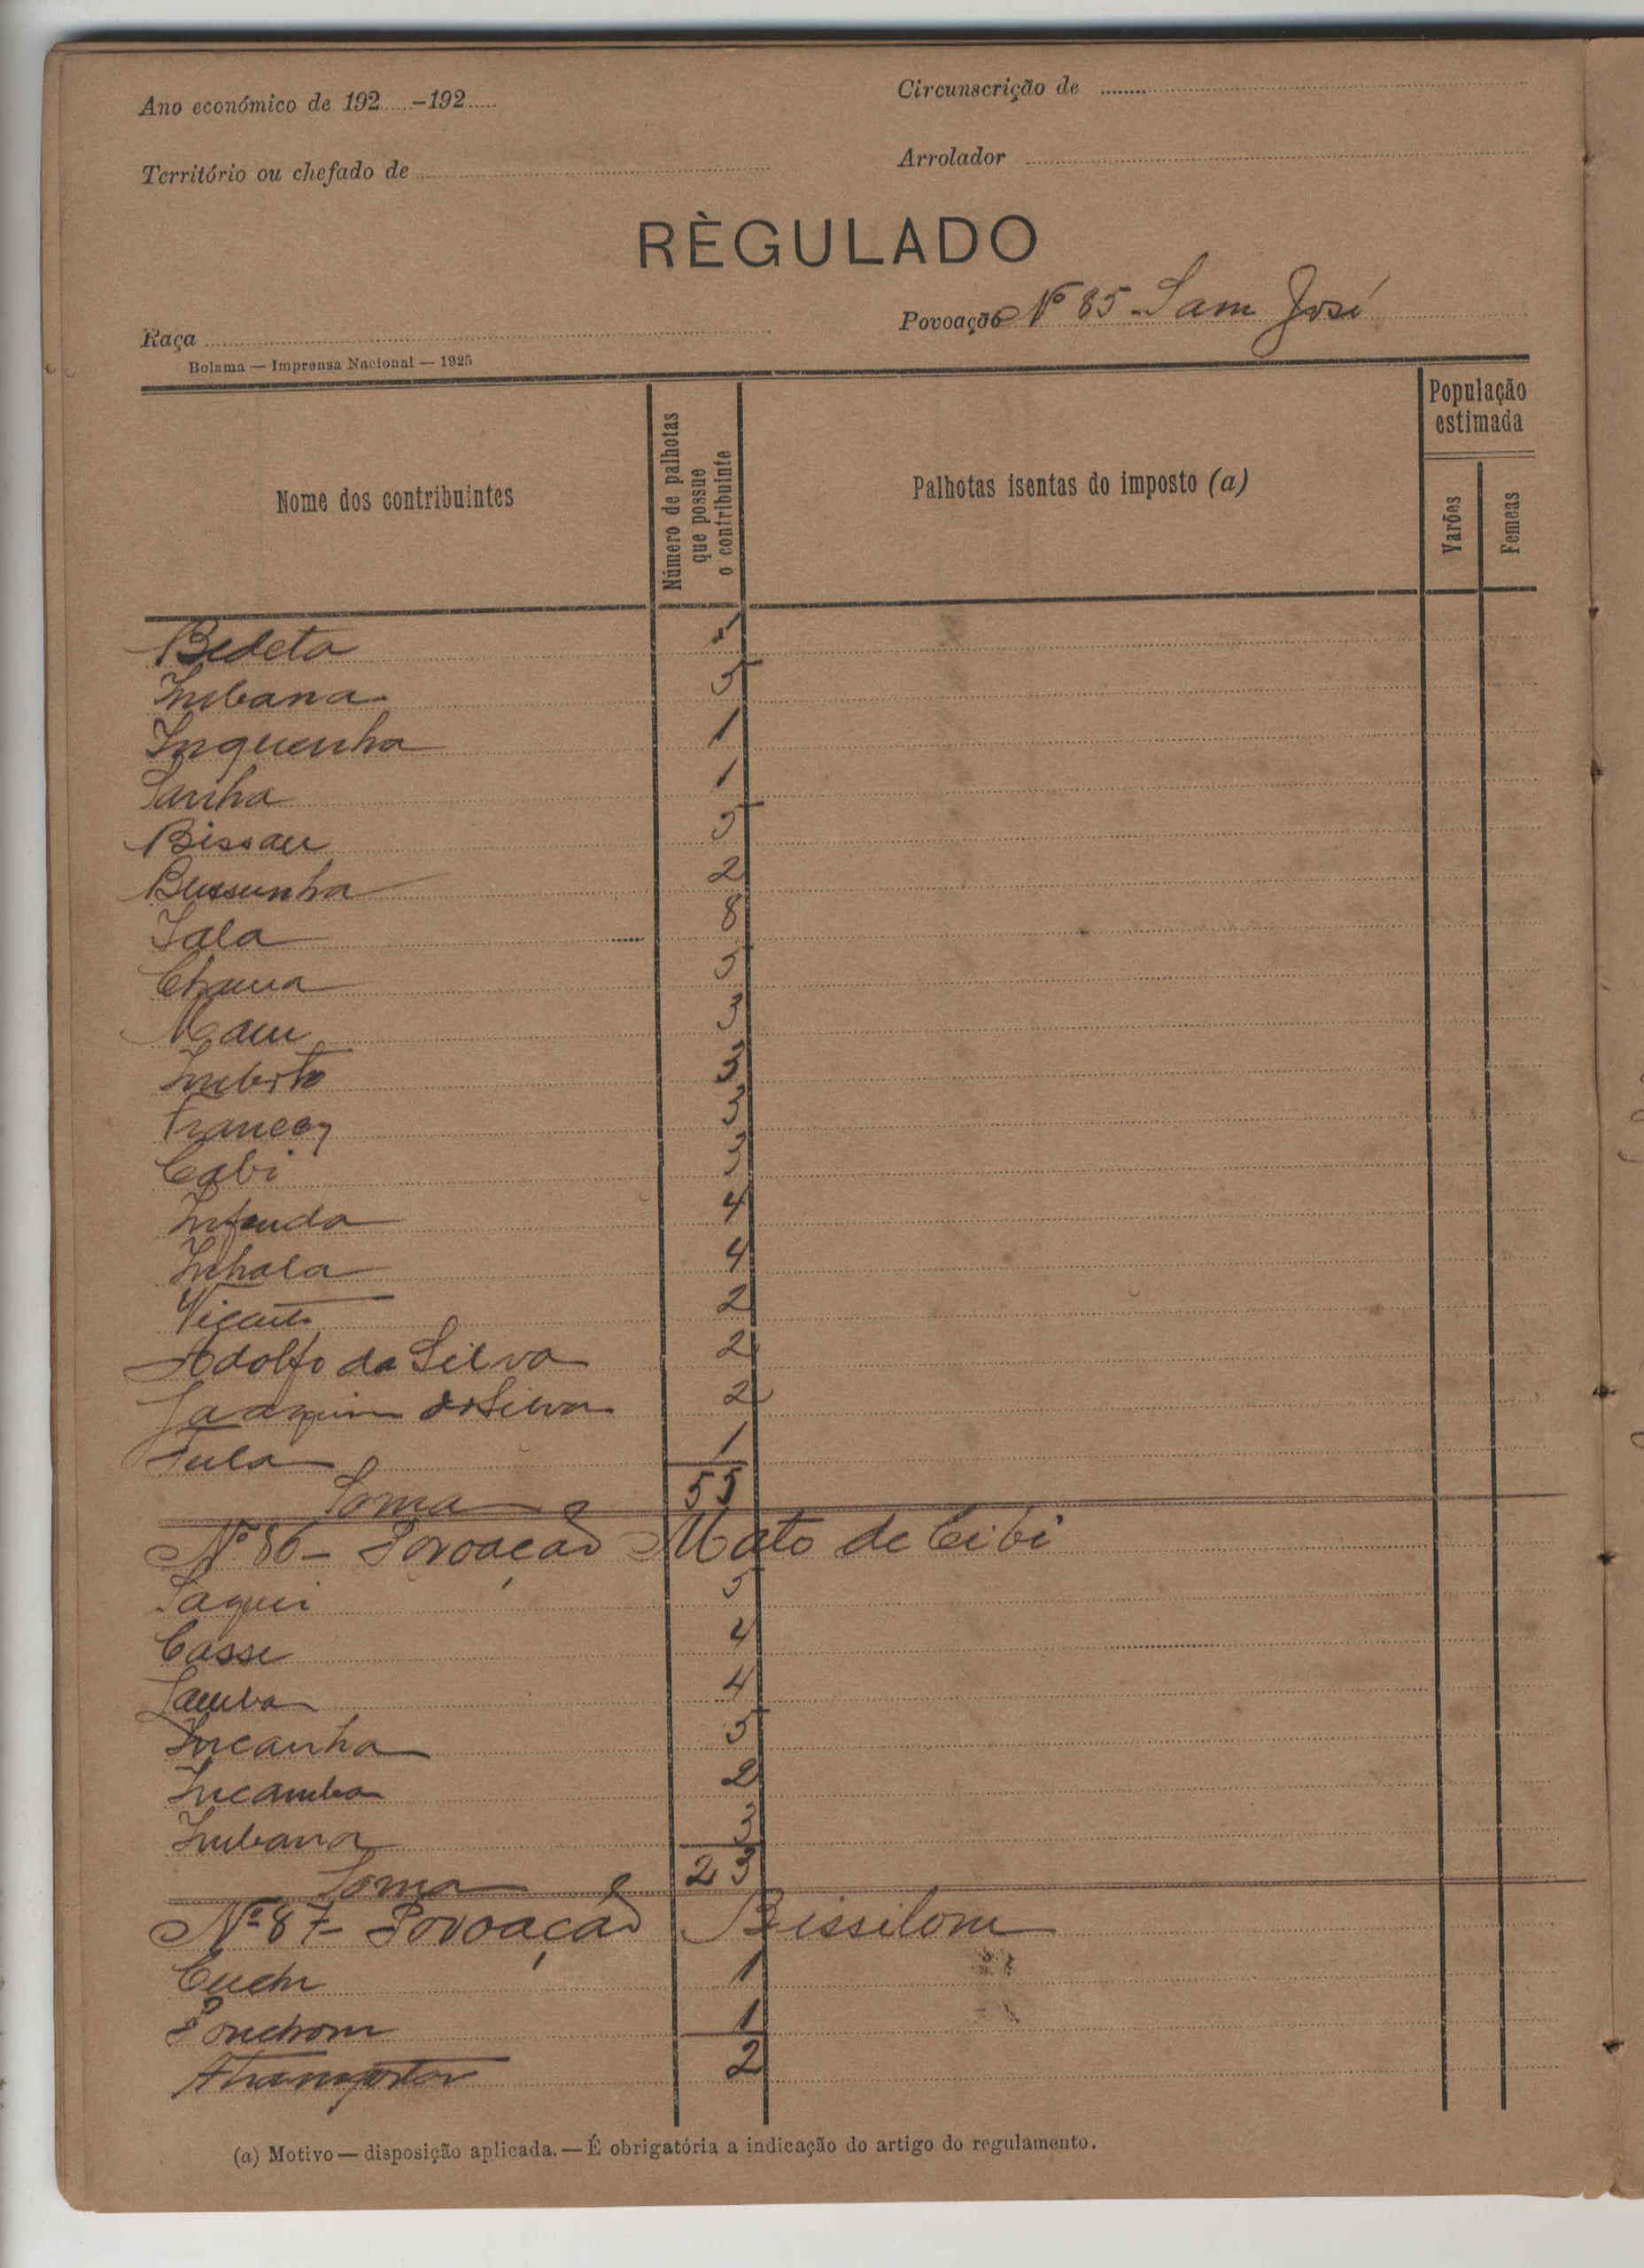 Ano económico de 192.....-192.....
Circunscrição de
Território ou chefado de
Arrolador
RÈGULADO
Raça
Povoação Nº 85 - Sam José
Bolama — Imprensa Nacional — 1925
Nome dos contribuintes
Número de palhotas que possue o contribuinte
Palhotas isentas do imposto (a)
População estimada
Varões
Femeas
Bedeta
Imbana 5
Inquenha 1
Sanha 1
Bissau 5
Bussunha 2
Iala 8
Chaua 5
Mau 3
3
3
Cabi 3
Infanda 4
Inhala 4
Vicente 2
Adolfo da Silva 2
Joaquim da Silva 2
Tula 1
Soma 55
Nº 86 - Povoação Mato de Cibi
Saqui 5
Casse 4
Samba 4
Incanha 5
Incamba 2
Imbana 3
Soma 23
Nº 87 - Povoação Bissilom
1
1
Atransportar 2
(a) Motivo — disposição aplicada. — É obrigatória a indicação do artigo do regulamento.